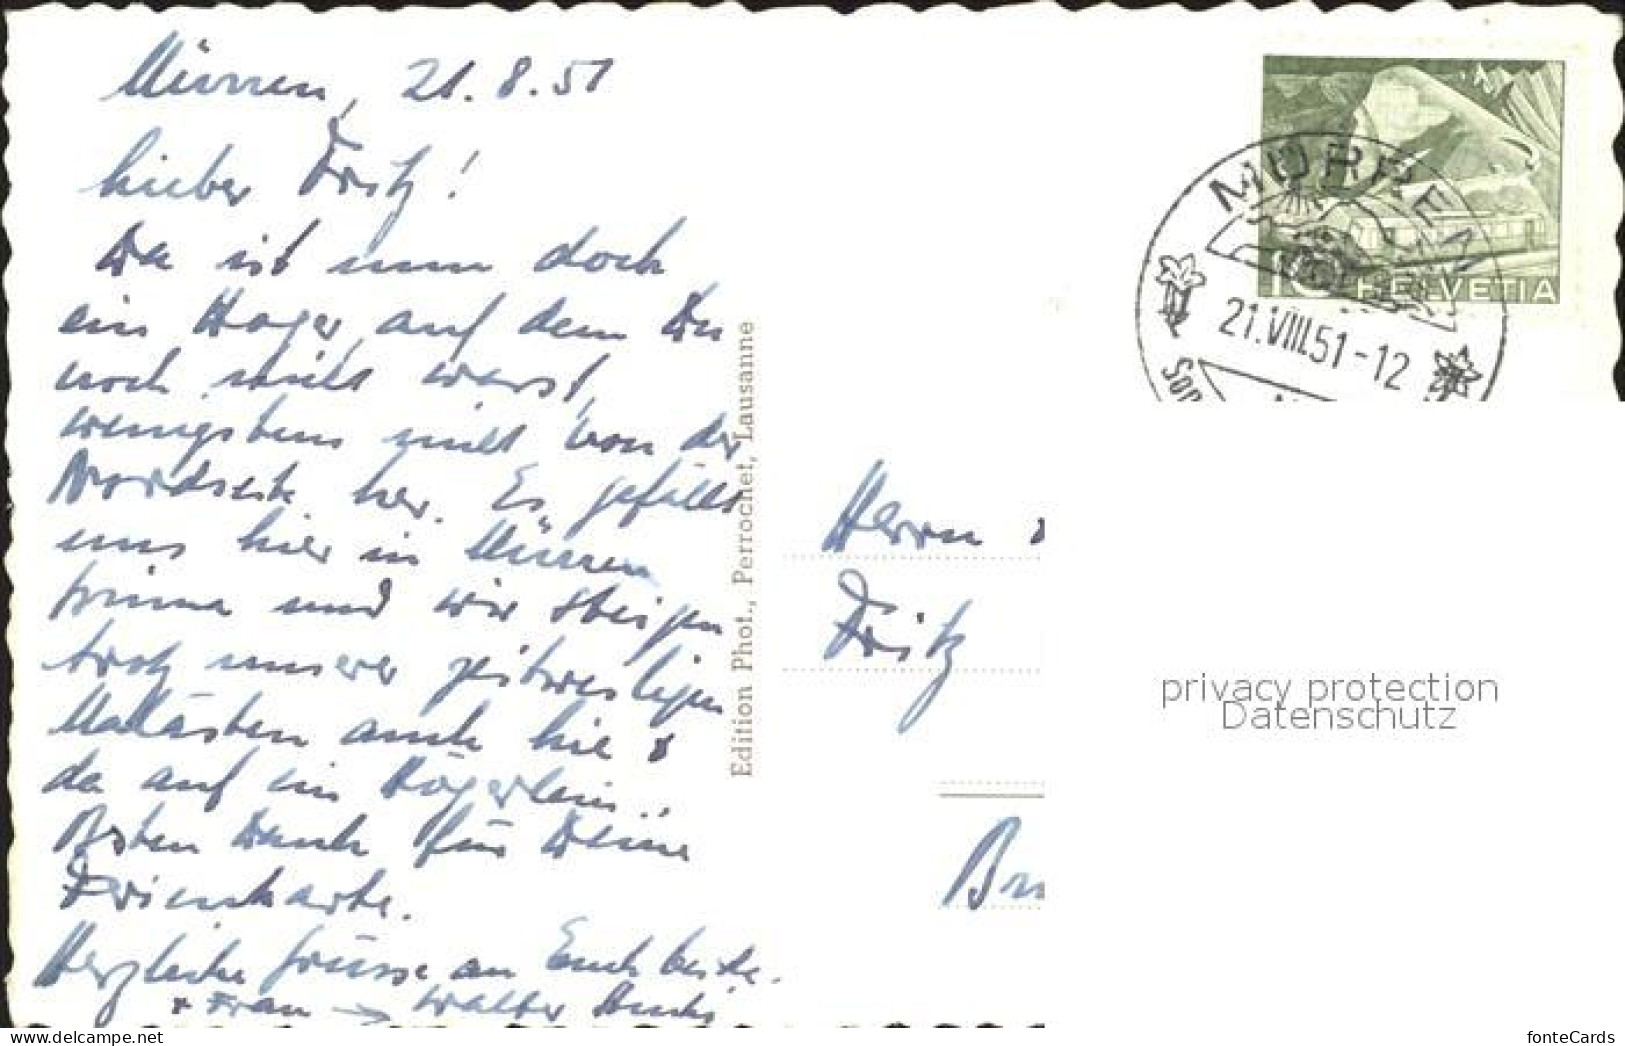 Mürren, 21.8.51
Lieber Fritz!
Da ist nun doch
ein Hoger, auf dem Du
noch nicht warst,
wenigstens nicht von der
Nordseite her. Es gefällt
uns hier in Mürren
prima und wir steigen
trotz unserer zeitweiligen
auch hie &
da auf ein Högerlein.
Besten Dank für Deine
Ferienkarte.
Herzliche Grüsse an Euch beide.
+ Frau → Walter
Edition Phot., Perrochet, Lausanne
MÜRREN
21.VIII.51-12
10 HELVETIA
Herrn
Fritz
privacy protection
Datenschutz
fonteCards